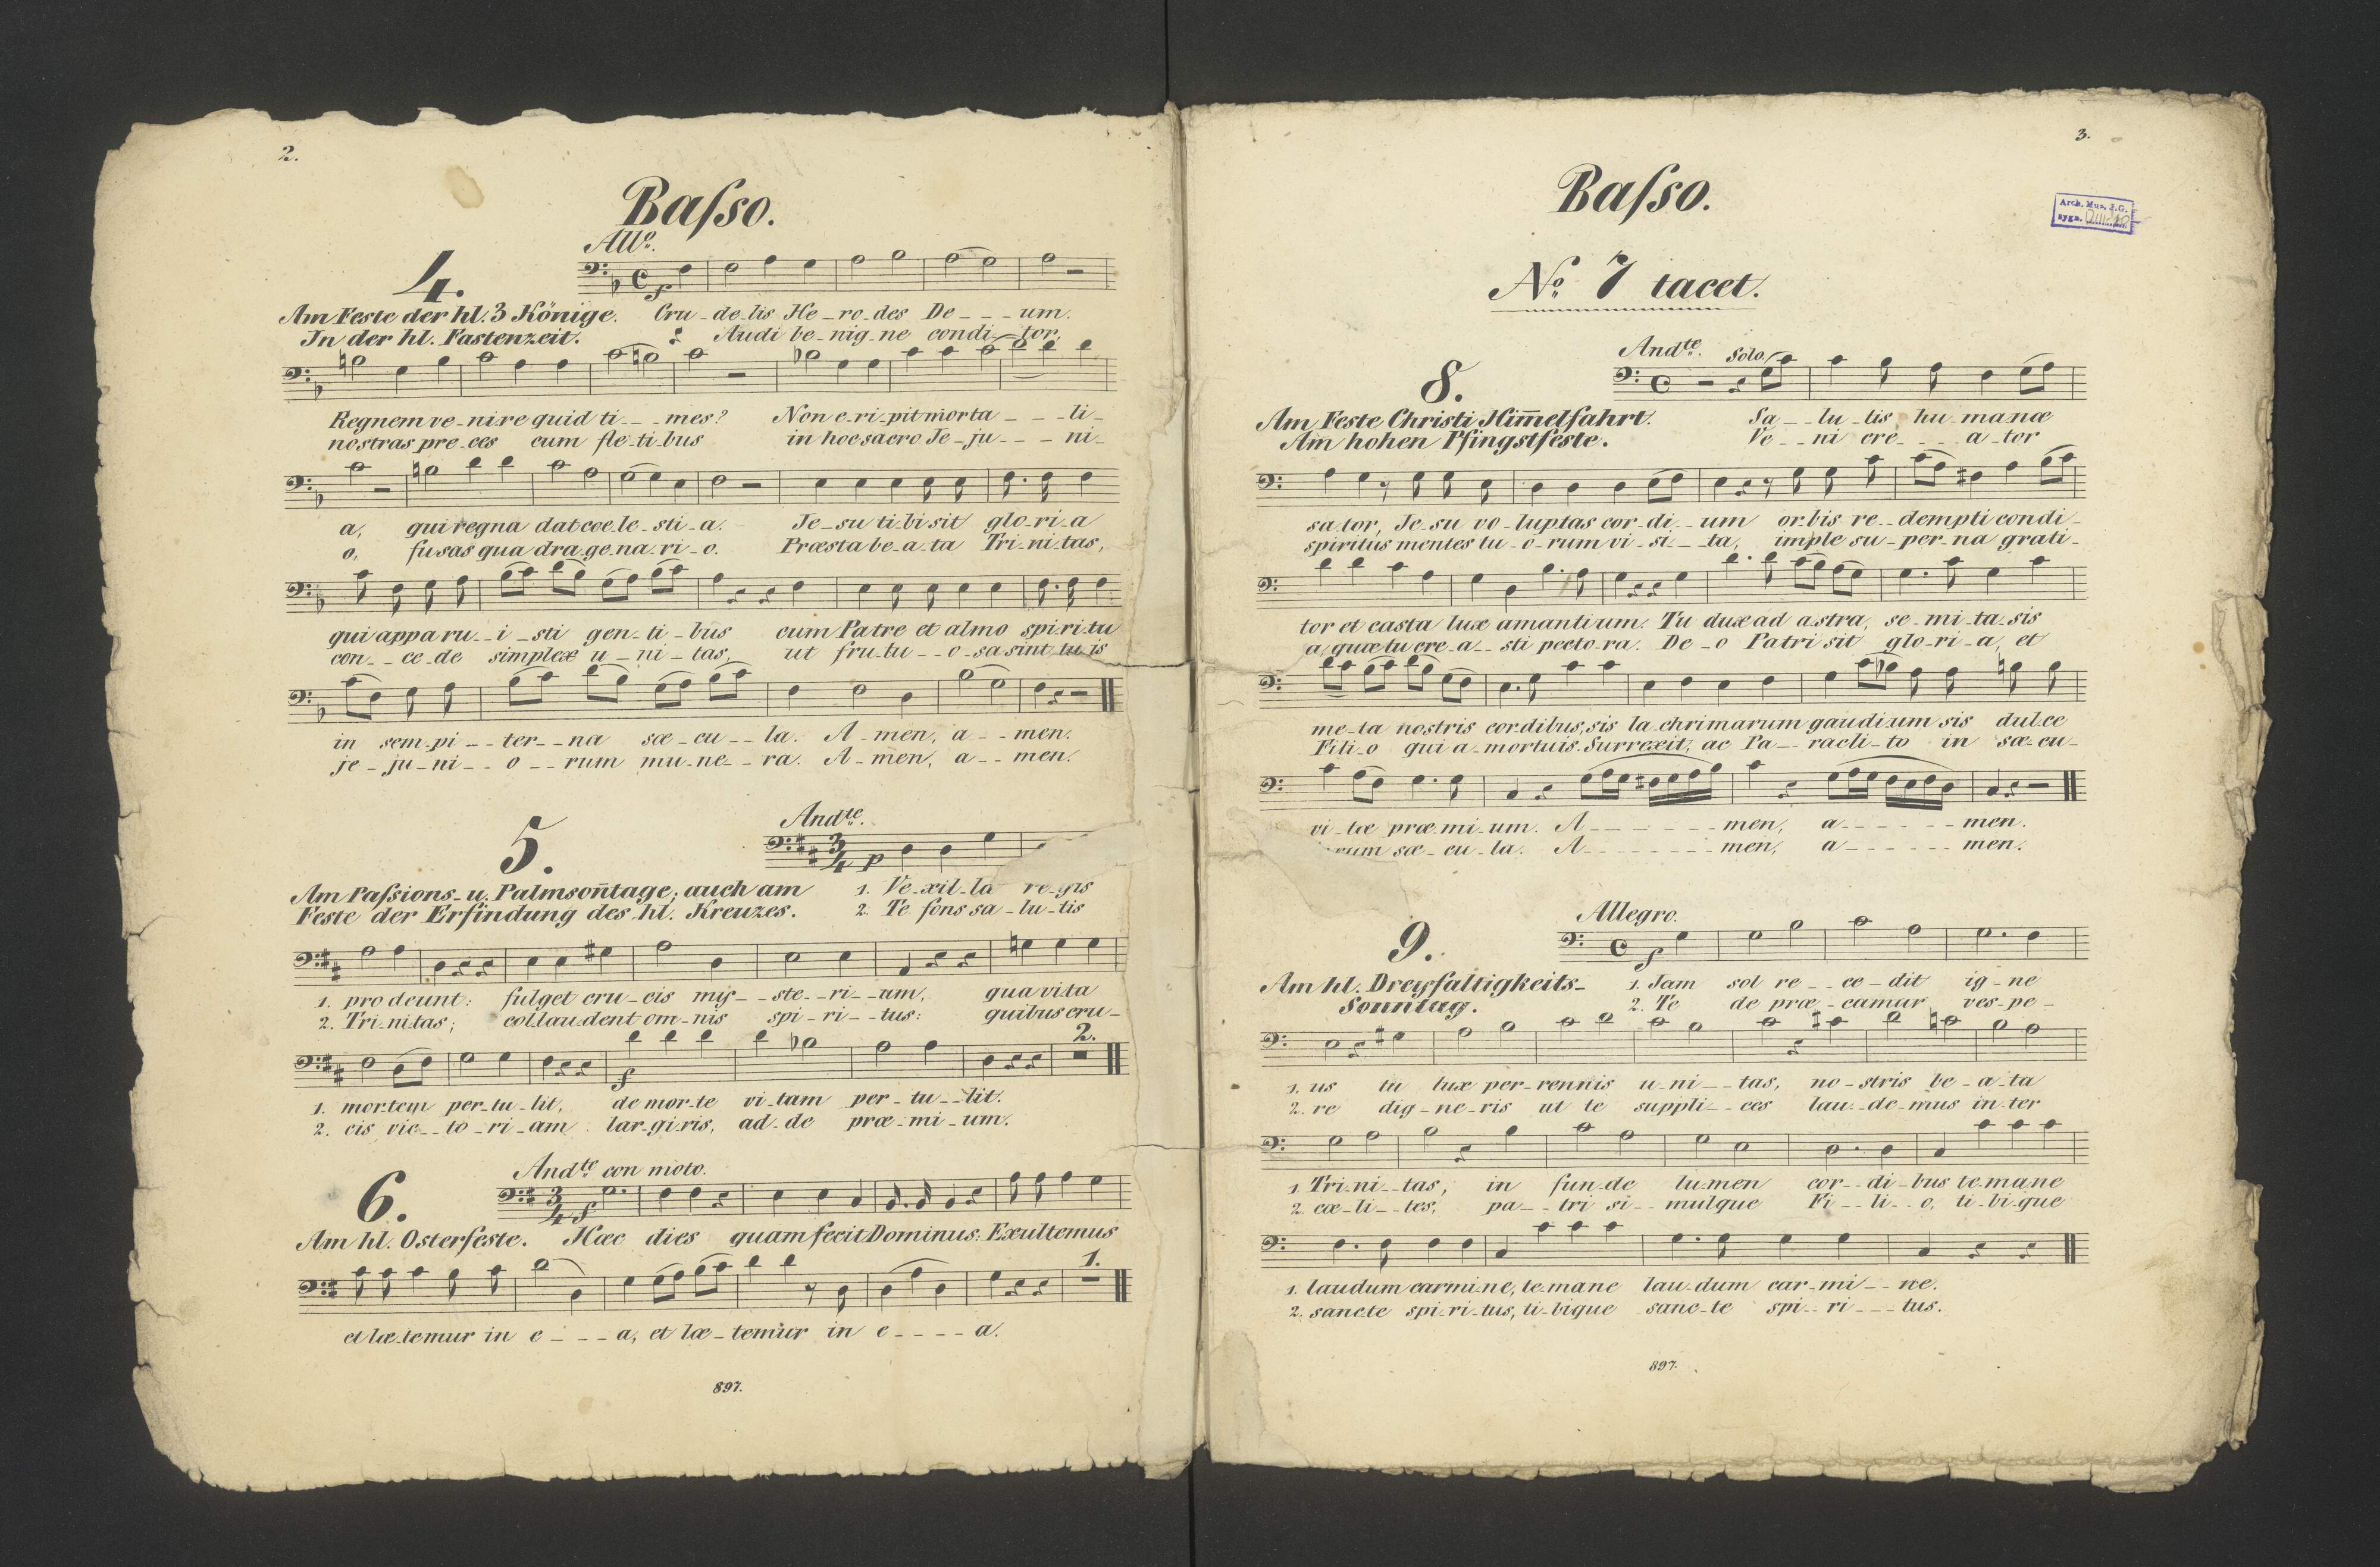 2.
Baſso.
Allo.
4.
Am Feste der hl. 3 Könige. Cru - de - lis He - ro - des De - - - um.
In der hl. Fastenzeit. Audi be - nig - ne condi - tor,
Regnem ve - ni - re quid ti - - - mes? Non e - ri - pit morta - - - li -
nostras pre - ces cum fle - ti - bus in hoc sacro Je - ju - - - ni -
a, qui regna dat coe - le - sti - a. Je - su ti - bi sit glo - ri - a
o, fusas qua dra - ge - na - ri - o. Præsta be - a - ta Tri - ni - tas,
qui appa ru - - i - sti gen - ti - bus cum Patre et almo spi - ri - tu
con - - ce - de simplex u - ni - tas, ut fru - tu - - o - sa sint tu is
in sem - pi - - ter - - na sæ - cu - - la. A - men, a - - men.
je - ju - ni - - o - - rum mu - ne - - ra. A - men, a - - men.
Andte.
5.
3/4 p
Am Paſsions - u. Palmson̄tage, auch am 1. Ve - xil - la re - gis
Feste der Erfindung des hl. Kreuzes. 2. Te fons sa - lu - tis
1. pro deunt: fulget cru - cis my - - ste - - ri - - um, qua vi - ta
2. Tri - ni - tas; col - lau - dent om - nis spi - ri - - tus: quibus cru -
2.
1. mortem per - tu - lit, de mor - te vi - tam per - tu - - lit.
2. cis vic - - to - ri - am lar - gi - ris, ad - de præ - mi - um.
Andte con moto.
6.
3/4 f
Am hl. Osterfeste. Hæc dies quam fecit Dominus. Exultemus
1.
et læ - temur in e - - - - a, et læ - temur in e - - - - a.
897.
3.
Baſso.
Arch. Muz. J.G.
sygn.
No. 7 tacet.
Andte. Solo
8.
Am Feste Christi Him̄elfahrt. Sa - - lu - tis hu - manæ
Am hohen Pfingstfeste. Ve - - ni cre - - - - a - tor
sa - tor, Je - su vo - luptas cor - di - - um or - bis re - - dempti condi -
spiritus mentes tu - o - rum vi - si - - ta, imple su - per - na grati -
tor et casta lux amantium. Tu dux ad astra, se - mi - ta sis
a, quæ tu cre - a - - sti pecto - ra. De - o Patri sit glo - ri - a, et
me - ta nostris cordibus, sis la - chrimarum gaudium sis dulce
Fili - o qui a - mortuis Surrexit, ac Pa - - racli - to in sæ - cu -
vi - tæ præ - mi - um. A - - - - - - men, a - - - - - - men.
rum sæ - cu - la. A - - - - - - men, a - - - - - - men.
Allegro.
9.
Am hl. Dreyfaltigkeits - 1. Jam sol re - - ce - dit ig - ne
Sonntag. 2. Te de præ - camur ves - pe -
1. us tu lux per - rennis u - ni - - tas, no - stris be - a - ta
2. re dig - ne - ris ut te suppli - - ces lau - de - mus in - ter
1. Tri - ni - - tas, in fun - de lu - men cor - - di - bus te mane
2. cœ - li - - tes, pa - - tri si - - mulque Fi - - li - - o, ti - bi que
1. laudum carmi - ne, te mane lau - dum car - mi - - ne.
2. sancte spi - ri - tus, ti - bique sanc - te spi - - ri - - - tus.
897.